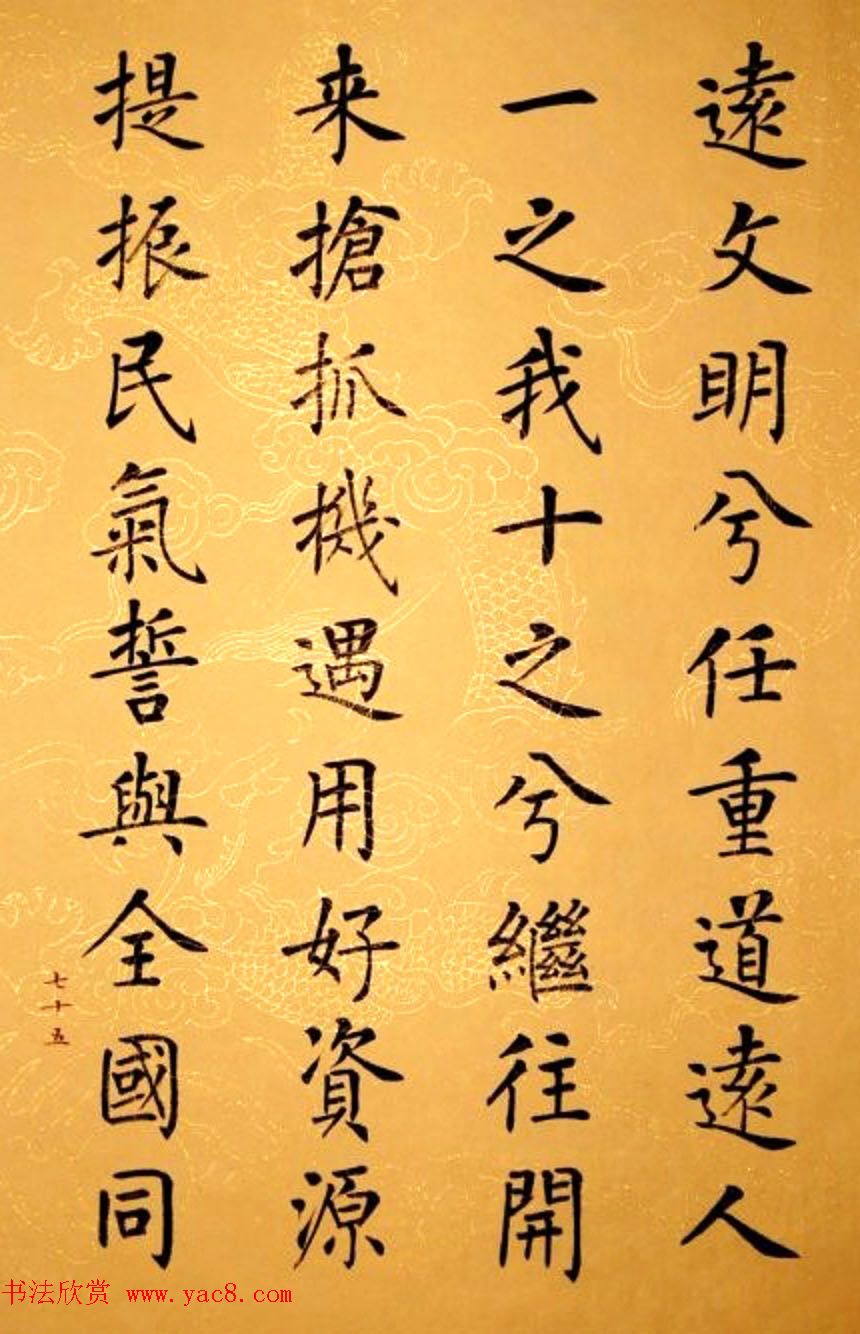 遠文明兮任重道遠人
一之我十之兮繼往開
来搶抓機遇用好資源
提振民氣誓與全國同
七十五
书法欣赏 www.yac8.com